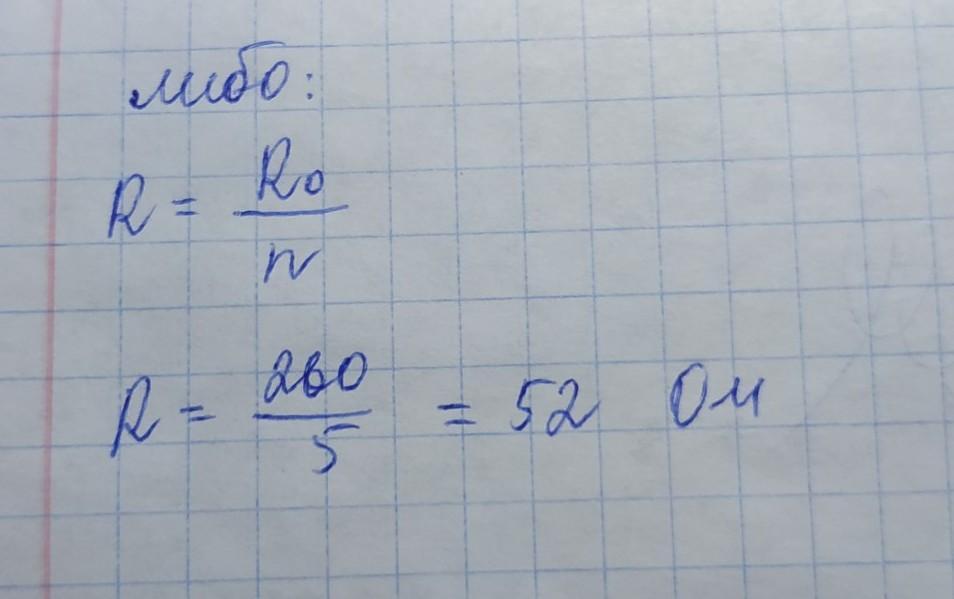 либо:
R = R₀/n
R = 260/5 = 52 Ом